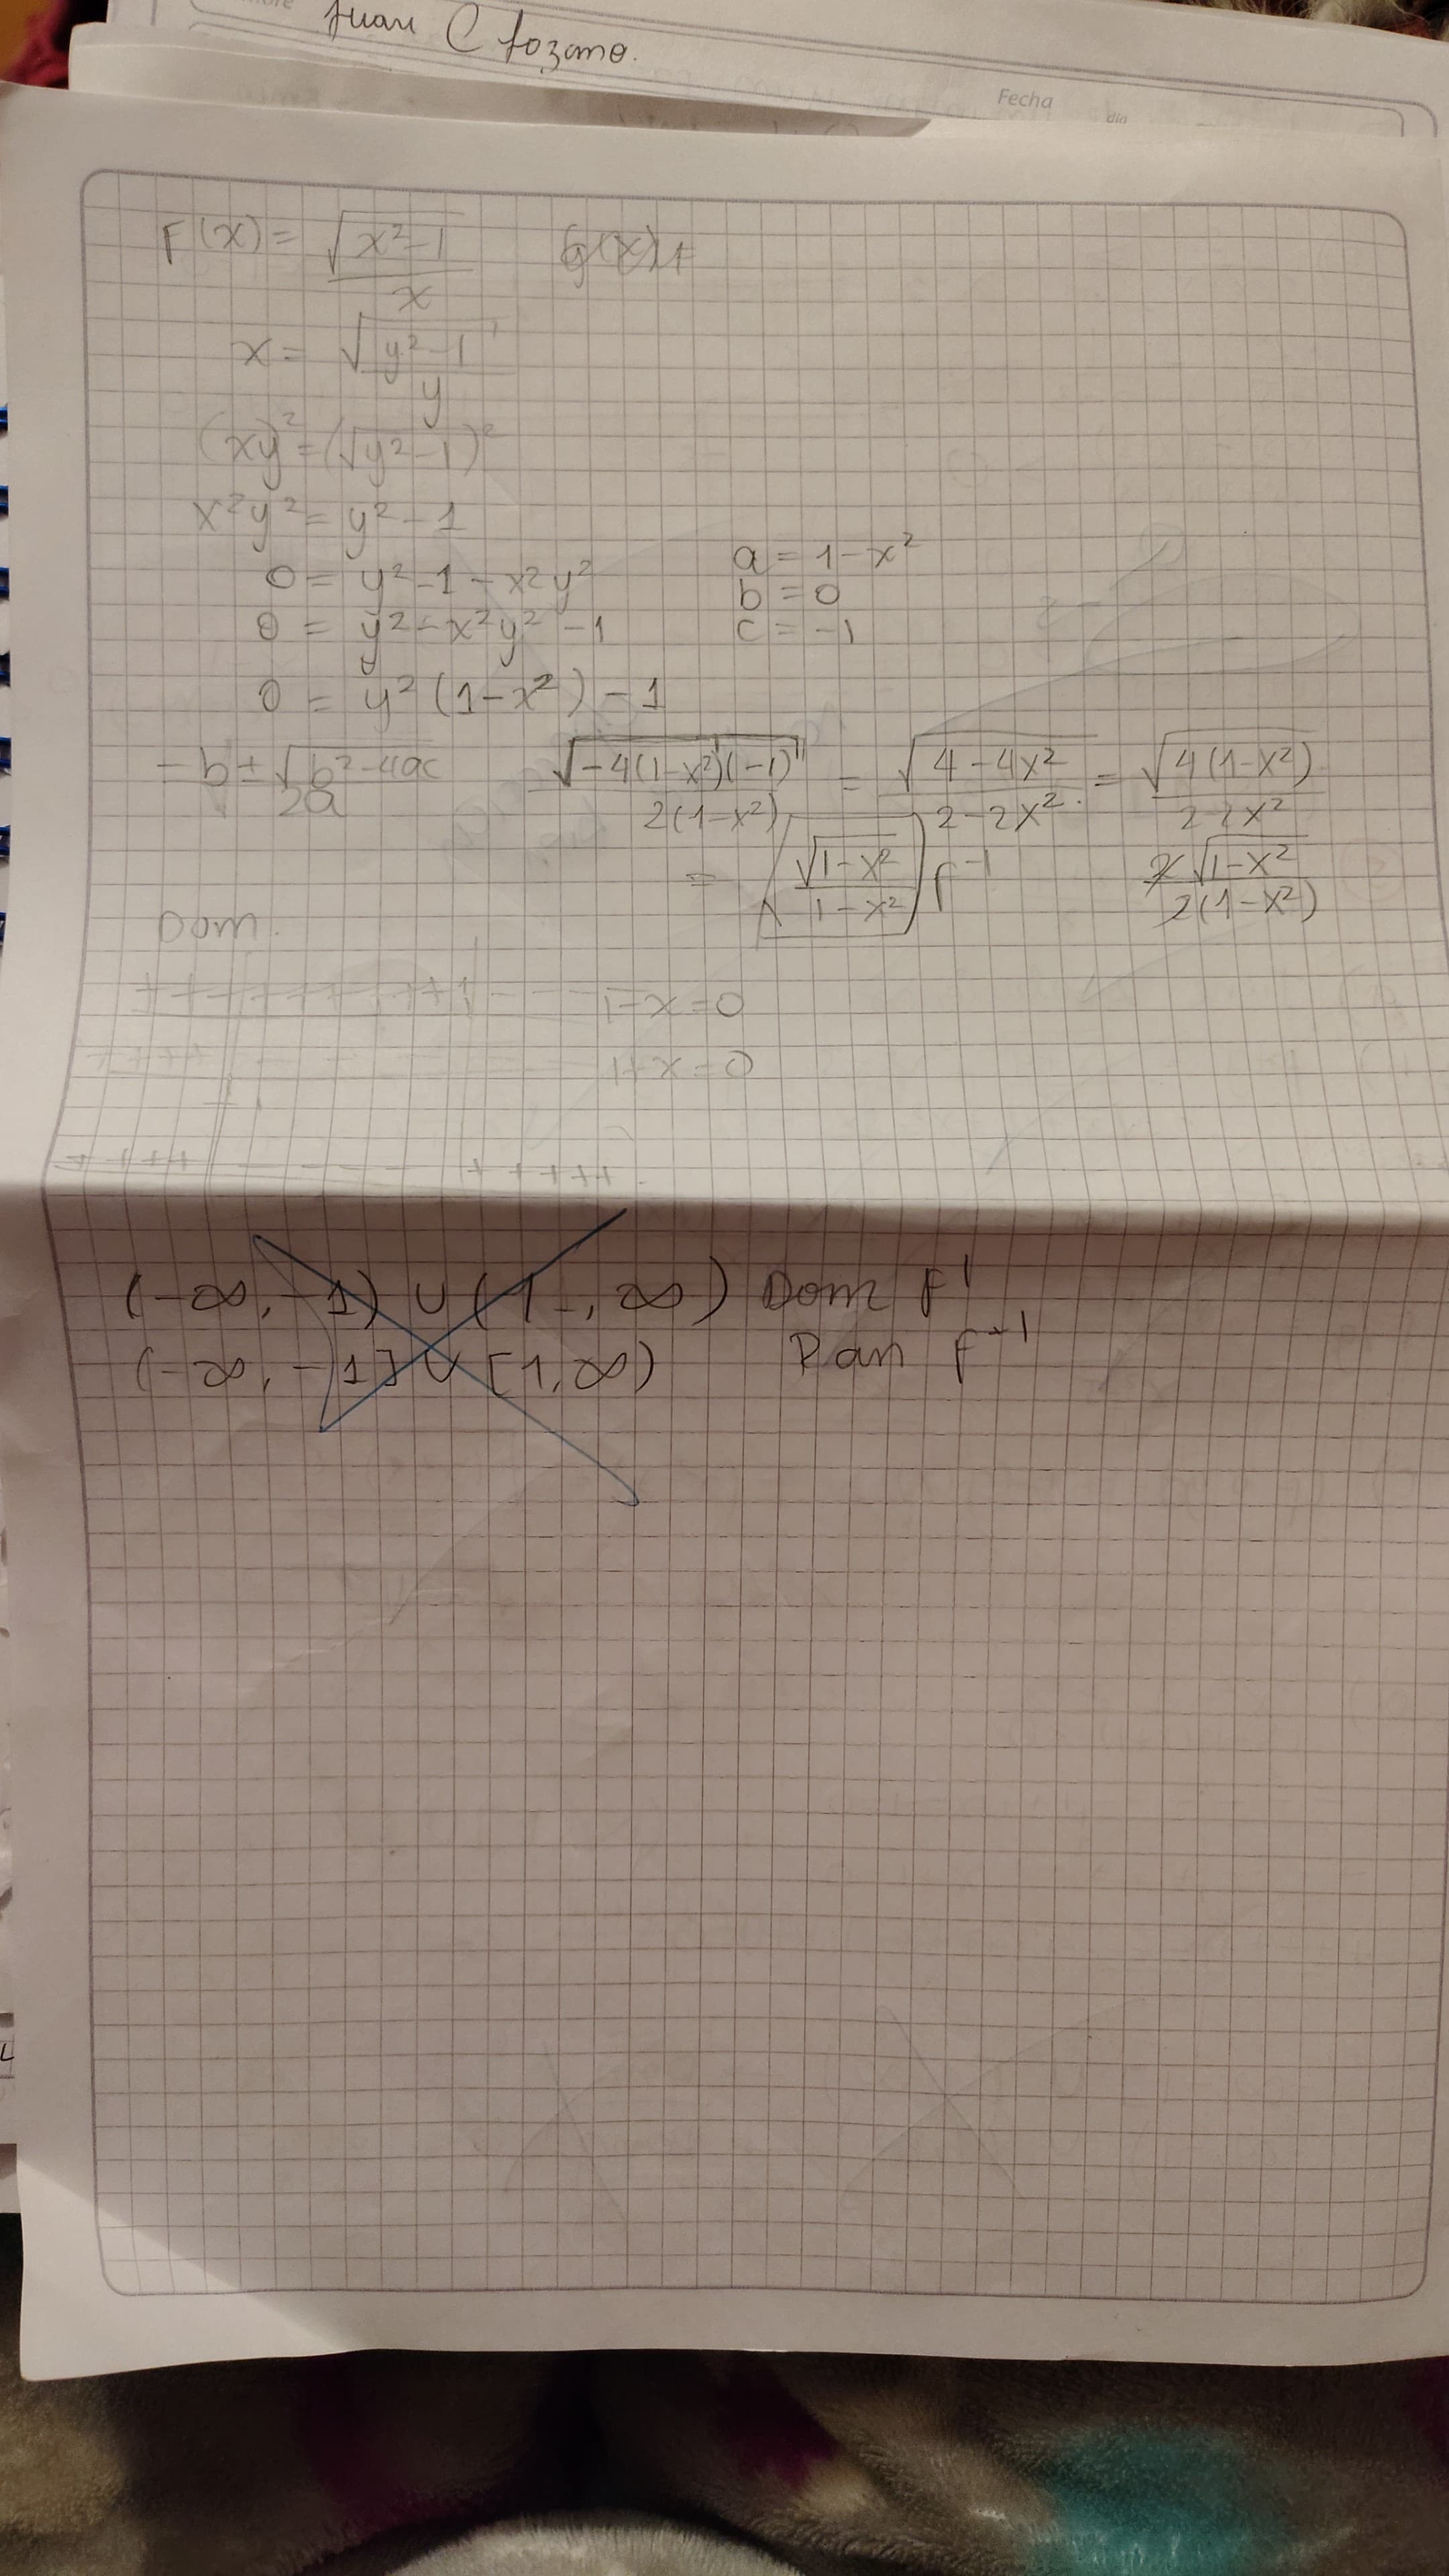 Juan C Lozano.
Fecha
día
F(x) = √(x²-1)/x
x = √(y²-1)/y
(xy)² = (√y²-1)²
x²y² = y²-1
0 = y²-1-x²y² a = 1-x²
b = 0
0 = y²-x²y²-1 c = -1
0 = y²(1-x²)-1
-b±√b²-4ac/2a √-4(1-x²)(-1)/2(1-x²) = √4-4x²/2-2x² = √4(1-x²)/2-2x²
= √1-x²/1-x² f⁻¹ 2√1-x²/2(1-x²)
Dom.
+++++++++1----- 1-x=0
----++++ 1+x=0
-1
++++ ---- +++++
(-∞,-1) ∪ (1-,∞) Dom F¹
(-∞,-1] ∪ [1,∞) Ran F⁻¹